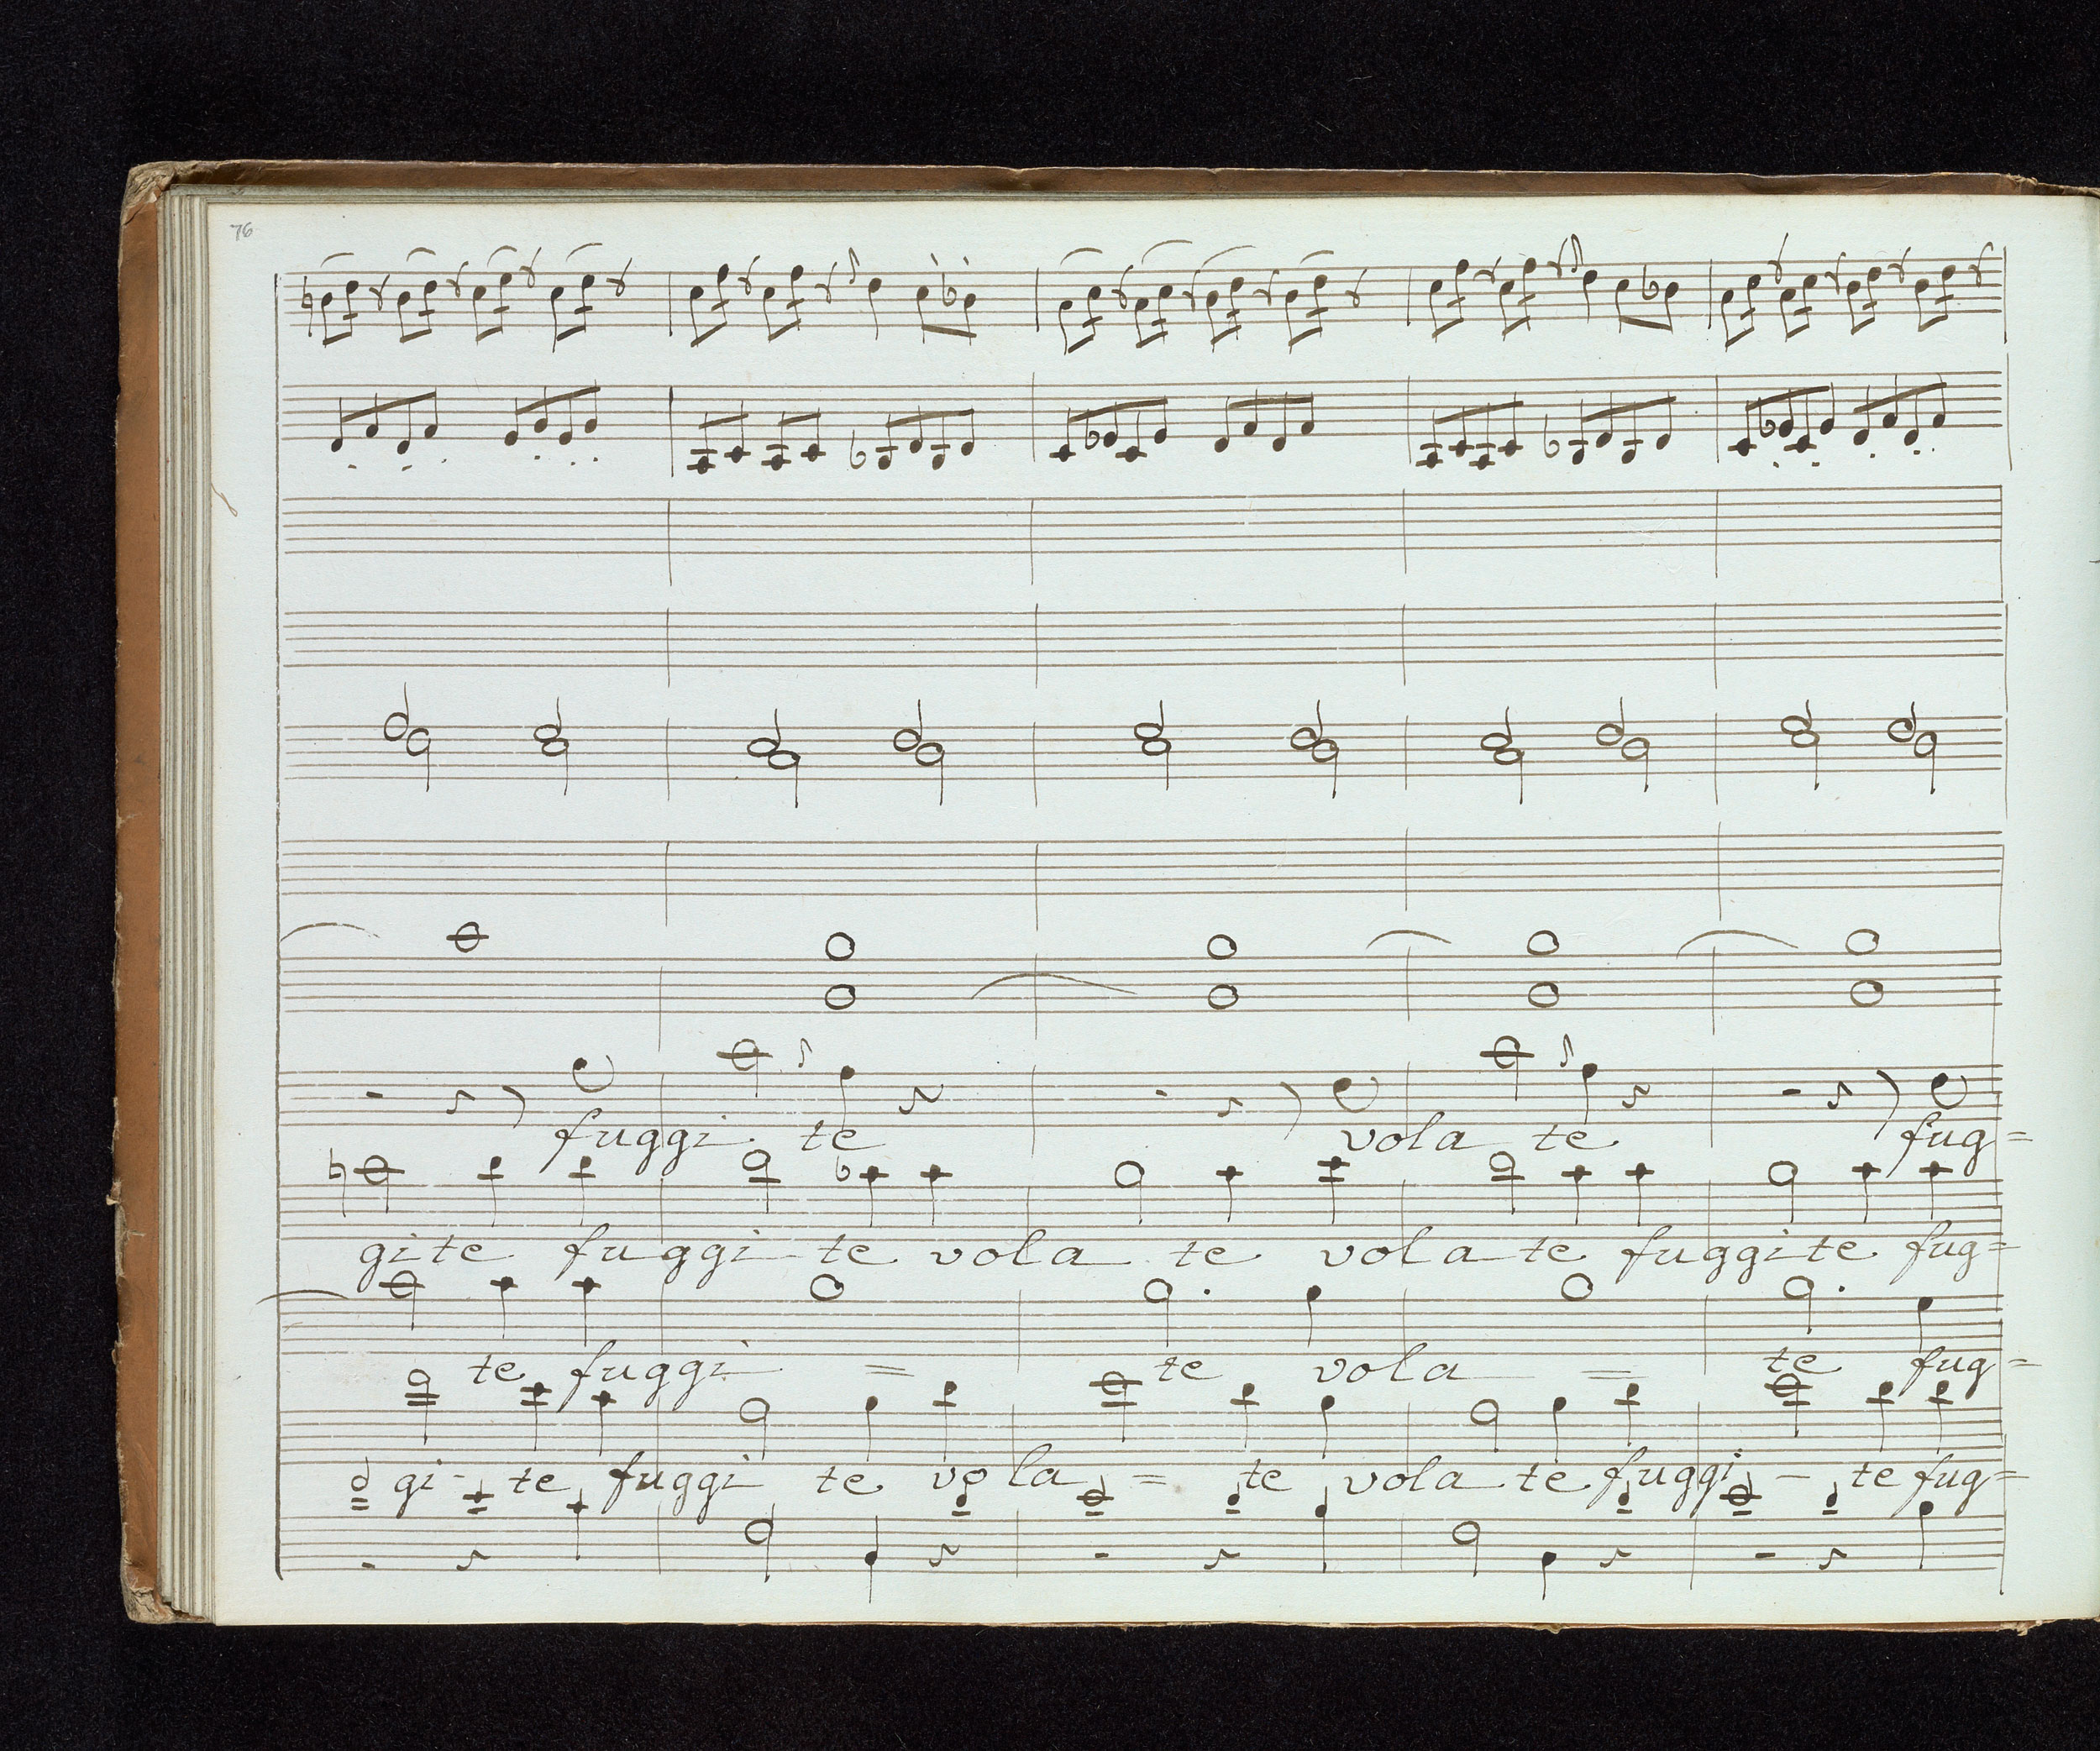 76
fuggi te vola te fug=
gite fuggi te vola te vola te fuggite fug=
te fuggi = te vola = te fug=
gi - te fuggi te vola = te vola te fuggi - te fug=